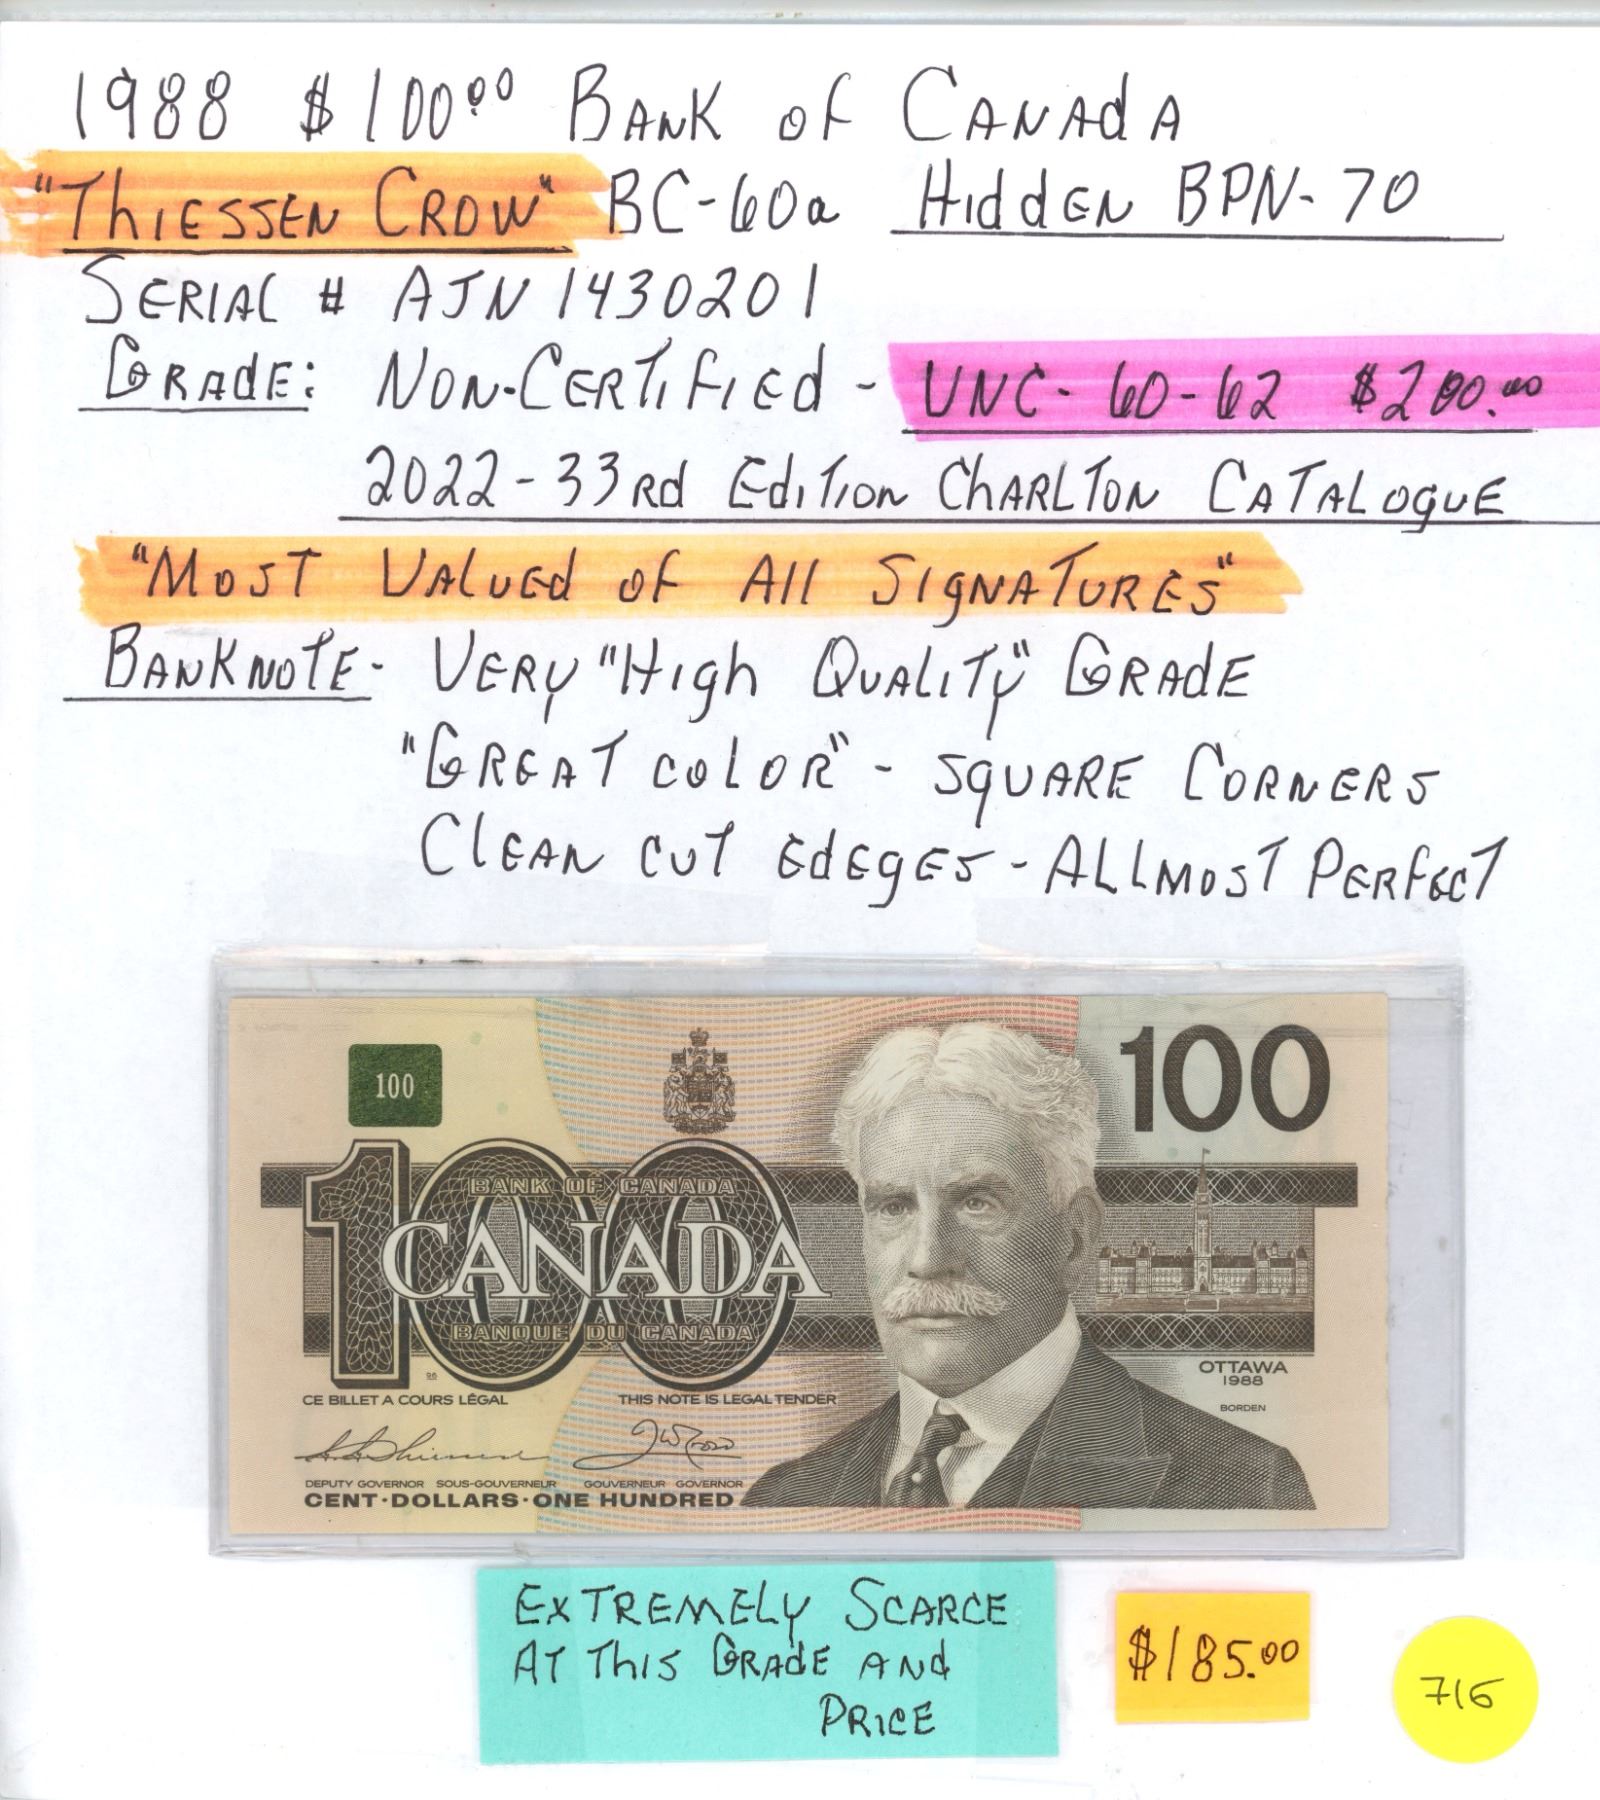 1988 $100.00 BANK of CANAdA
"ThIESSEN CROW" BC-60a HIddEN BPN-70
SERIAL # AJN 1430201
GRAdE: NON-CERTIfIEd - UNC- 60-62 $200.00
2022-33Rd EdITION ChARLTON CATALOgUE
"MOST VALUEd of All SIgNATURES"
BANKNOTE- VERY "HIgh QUALITY" GRAdE
"GREAT COLOR" - SQUARE CORNERS
ClEAN CUT EdEgES - ALLMOST PERfECT
100
100
BANK OF CANADA
100
CANADA
BANQUE DU CANADA
OTTAWA
1988
BORDEN
CE BILLET A COURS LÉGAL THIS NOTE IS LEGAL TENDER
DEPUTY GOVERNOR SOUS-GOUVERNEUR GOUVERNEUR GOVERNOR
CENT·DOLLARS·ONE HUNDRED
EXTREMELY SCARCE
AT ThIS GRAdE ANd
PRICE
$185.00
716